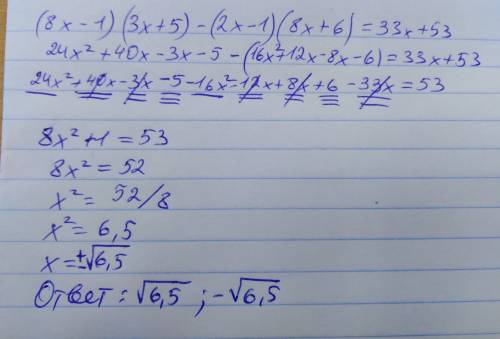 (8x-1)(3x+5)-(2x-1)(8x+6)=33x+53
24x²+40x-3x-5-(16x²+12x-8x-6)=33x+53
24x²+40x-3x-5-16x²-12x+8x+6-33x=53
8x²+1=53
8x²=52
x²=52/8
x²=6,5
x=±√6,5
Ответ: √6,5; -√6,5